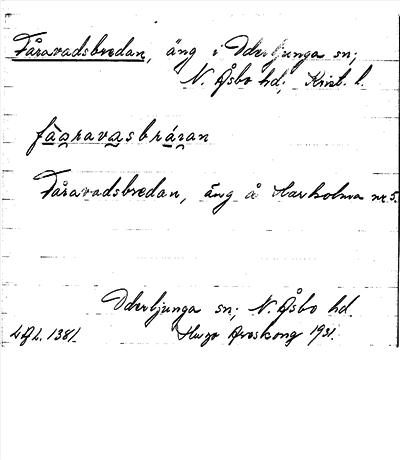 Fåravadsbredan, äng i Oderljunga sn;
N. Åsbo hd; Krist. l.
fåaravasbráran
Fåravadsbredan, äng å Harholma nr 5.
Oderljunga sn; N. Åsbo hd.
LAL. 1381. Hugo Areskoug 1931.